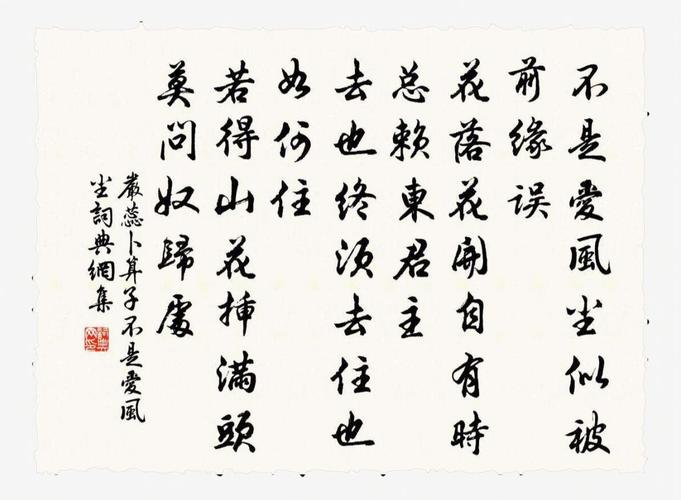 不是愛風尘似被
前緣误
花落花開自有時
总赖東君主
去也终须去住也
如何住
若得山花挿满頭
莫问奴歸處
嚴蕊卜算子不是愛風
尘詞典網集